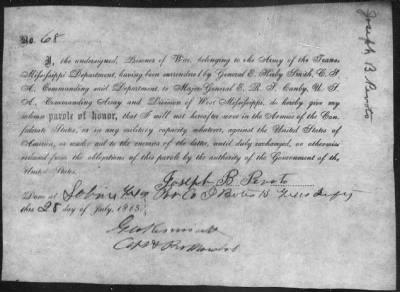 No. 68
I, the undersigned, Prisoner of War, belonging to the Army of the Trans-
Mississippi Department, having been surrendered by General E. Kirby Smith, C. S.
A., Commanding said Department, to Major General E. R. S. Canby, U. S.
A., Commanding Army and Division of West Mississippi, do hereby give my
solemn parole of honor, that I will not hereafter serve in the Armies of the Con-
federate States, or in any military capacity whatever, against the United States of
America, or render aid to the enemies of the latter, until duly exchanged, or otherwise
released from the obligations of this parole by the authority of the Government of the
United States.
Joseph B.
Done at Sabine
this 28 day of July, 1865.
Joseph B.